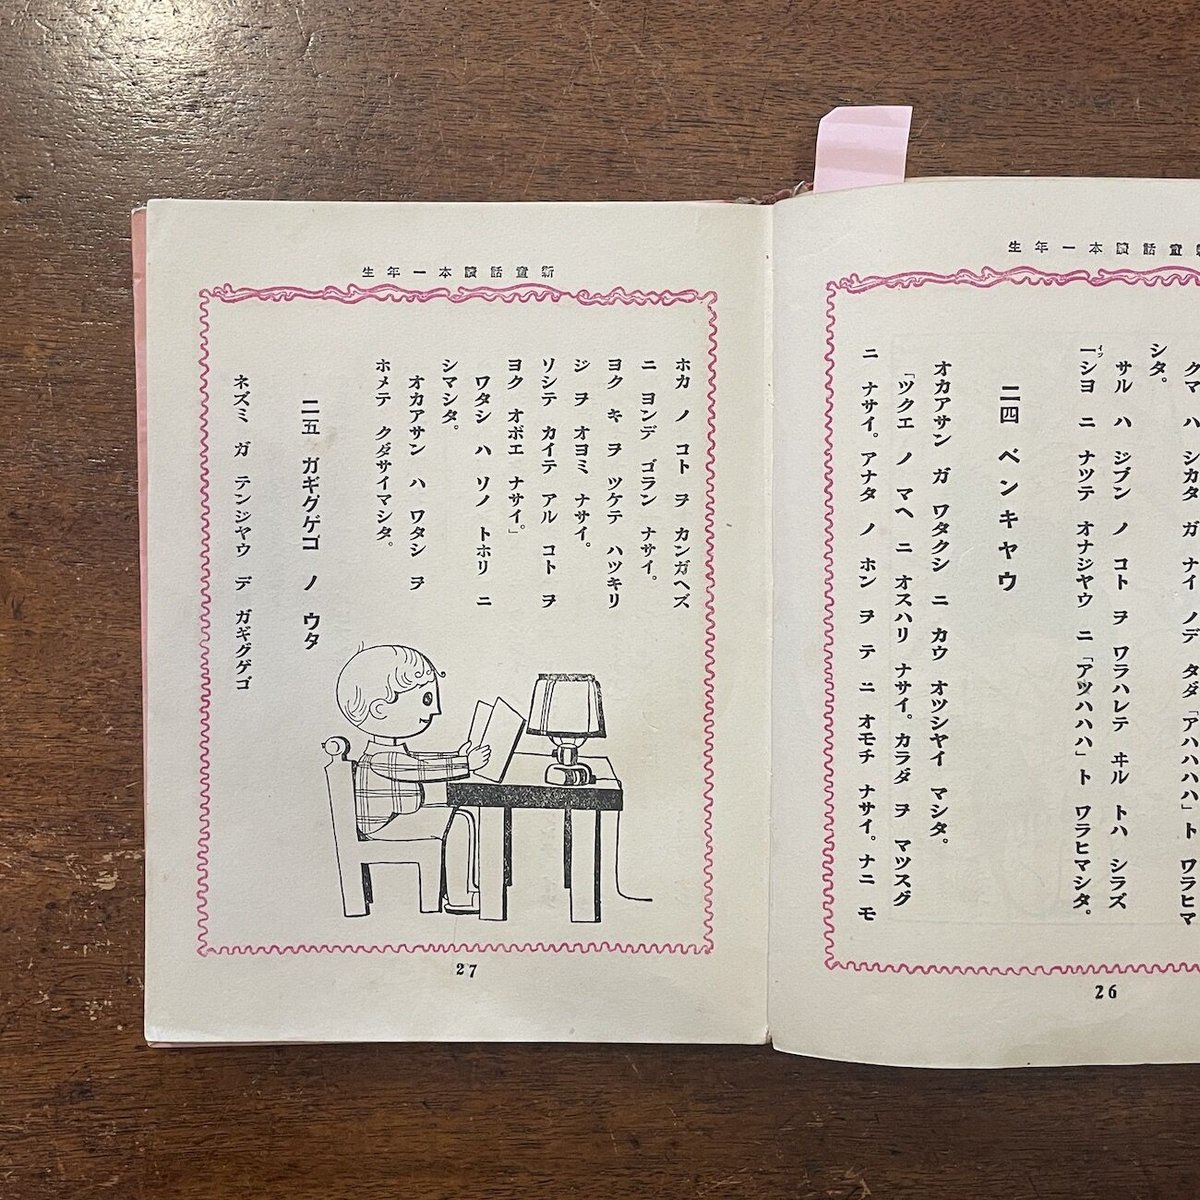 新童話讀本一年生
クマ ハ シカタ ガ ナイ ノデ タダ「アハハハハ」ト ワラヒマ
シタ。
サル ハ ジブン ノ コト ヲ ワラハレテ ヰル トハ シラズ
イツ
一シヨ ニ ナツテ オナジヤウ ニ「アツハハハ」ト ワラヒマシタ。
二四 ベンキヤウ
オカアサン ガ ワタクシ ニ カウ オツシヤイ マシタ。
「ツクエ ノ マヘ ニ オスハリ ナサイ。カラダ ヲ マツスグ
ニ ナサイ。アナタ ノ ホン ヲ テ ニ オモチ ナサイ。ナニ モ
26
新童話讀本一年生
ホカ ノ コト ヲ カンガヘズ
ニ ヨンデ ゴラン ナサイ。
ヨク キ ヲ ツケテ ハツキリ
ジ ヲ オヨミ ナサイ。
ソシテ カイテ アル コト ヲ
ヨク オボエ ナサイ。」
ワタシ ハ ソノ トホリ ニ
シマシタ。
オカアサン ハ ワタシ ヲ
ホメテ クダサイマシタ。
二五 ガギグゲゴ ノ ウタ
ネズミ ガ テンジヤウ デ ガギグゲゴ
27